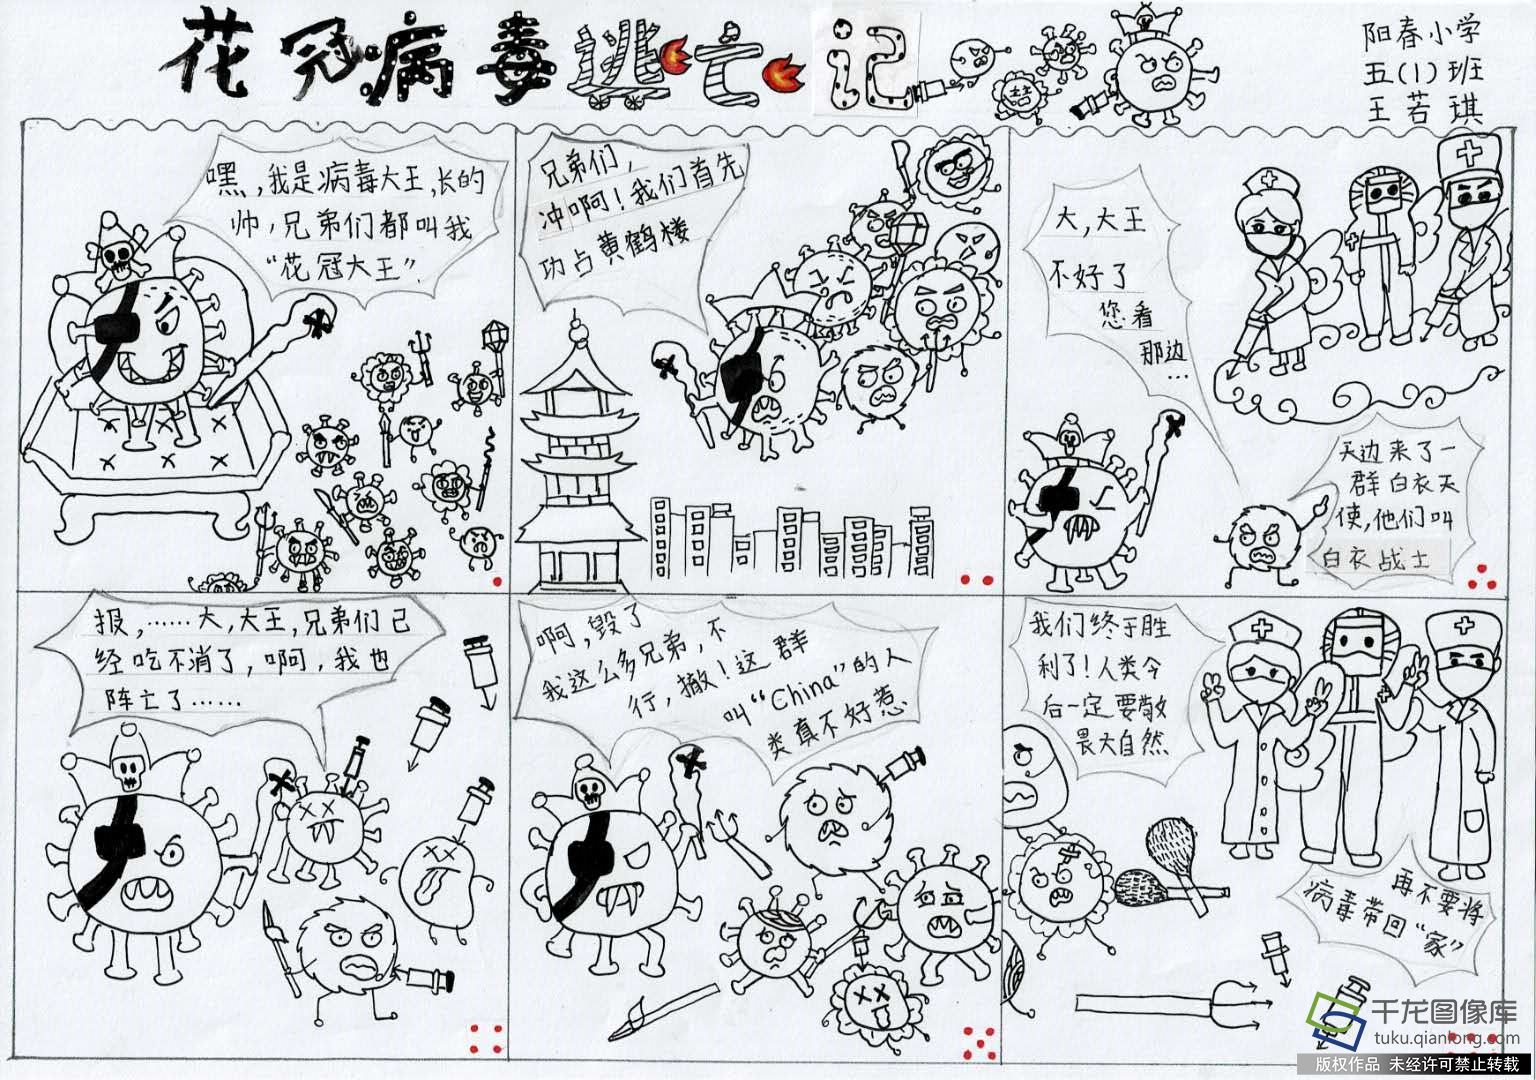 花冠病毒逃亡记
阳春小学
五(1)班
王若琪
嘿,我是病毒大王,长的
帅,兄弟们都叫我
“花冠大王”.
兄弟们,
冲啊!我们首先
功占黄鹤楼
大,大王
不好了
您看
那边
...
天边来了一
群白衣天
使,他们叫
白衣战士
报,……大,大王,兄弟们已
经吃不消了,啊,我也
阵亡了……
啊,毁了
我这么多兄弟,不
行,撤!这群
叫“China”的人
类真不好惹
我们终于胜
利了!人类今
后一定要敬
畏大自然
再不要将
病毒带回“家”
千龙图像库
tuku.qianlong.com
版权作品 未经许可禁止转载